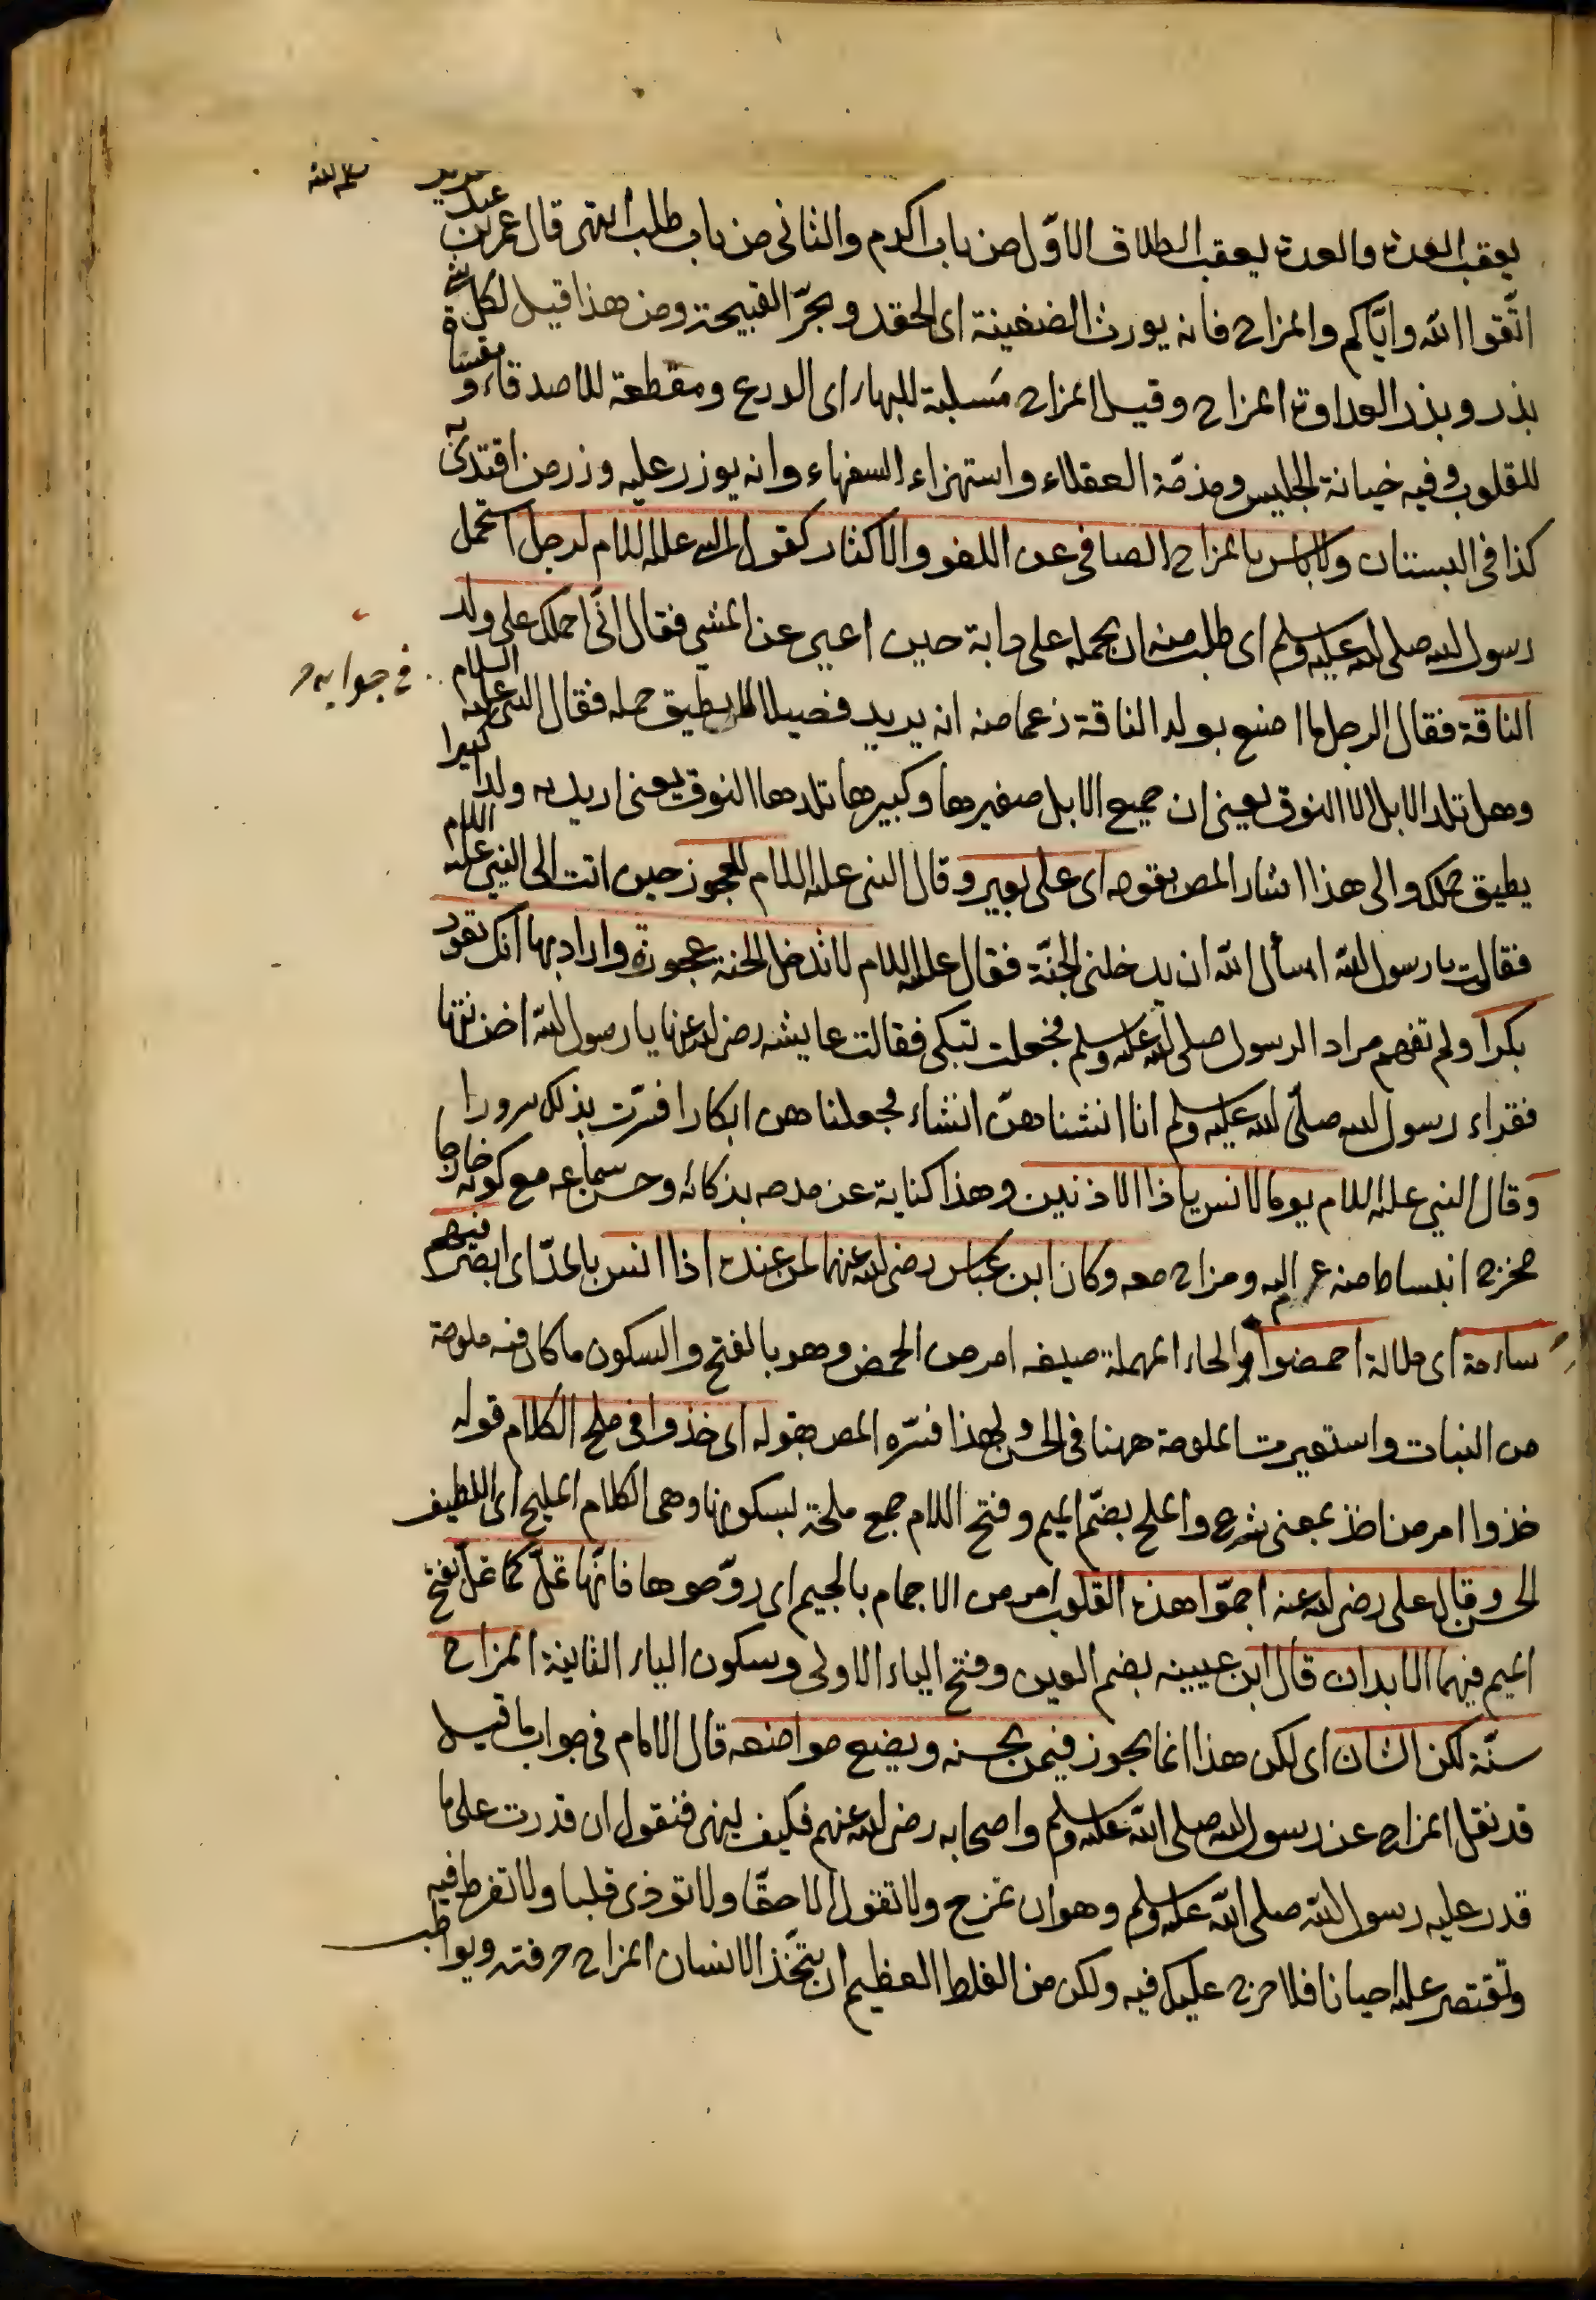 يعقب العدة والعدة يعقب الطلاق الاوّل من باب اكرم والثانى من باب طلب انتهى قال عمر بن عبد
اتّقوا الله وايّاكم والمزاح فانه يورث الضغينة اى الحقد ويجرّ القبيحة ومن هذا قيل لكل شئ
بذر وبذر العداوة المزاح وقيل المزاح مَسلبة للبهاء اى الدرع ومقطعة للاصدقاء و مقساة
للقلوب وفيه خيانة الجليس ومذمّة العقلاء واستهزاء السفهاء وانه يوزر عليه وزر من اقتدى به
كذا فى البستان ولا بأس بالمزاح الصافى عن اللغو والاكثار كقول النبى عليه السلام لرجل استحمل
رسول الله صلى الله عليه وسلم اى طلب منه ان يحمله على دابة حين اعيى عن المشى فقال انّى احملك على ولد
الناقة فقال الرجل ما اصنع بولد الناقة زعما منه انه يريد فصيلا لا يطيق حمله فقال النبى عليه السلام
فى جوابه
وهل تلد الابل الا النوق يعنى ان جميع الابل صغيرها وكبيرها تلدها النوق يعنى اريد به ولدا كبيرا
يطيق حملك والى هذا اشار المص بقوله اى على بعير وقال النبى عليه السلام للعجوز حين اتت الى النبى عليه السلام
فقالت يا رسول الله اسأل الله ان يدخلنى الجنّة فقال عليه السلام لا تدخل الجنة عجوزة واراد بها انك تعود
بكرا ولم تفهم مراد الرسول صلى الله عليه وسلم فجعلت تبكى فقالت عايشه رضى الله عنها يا رسول الله احزنتها
فقراء رسول الله صلّى الله عليه وسلم انا انشئناهنّ انشاء فجعلناهن ابكارا فسرّت بذلك سرورا
وقال النبى عليه السلام يوما لانس يا ذا الاذنين وهذا كناية عن مدحه بذكائه وحسن سماعه مع كونه خارجا
مخرج انبساط منه عم اليه ومزاح معه وكان ابن عباس رضى الله عنهما لمن عنده اذا انس بالمدّ اى ابصر فيهم
ساءمة اى ملالة احمضوا بالحاء المهملة صيغه امر من الحمض وهو بالفتح والسكون ما كان فيه ملوحة
من النبات واستعيرت الملوحة ههنا فى الحسن ولهذا فسّره المص بقوله اى خذوا فى ملح الكلام قوله
خذوا امر من اخذ بمعنى شرع والملح بضمّ الميم وفتح اللام جمع ملحة بسكونها وهى الكلام المليح اى اللطيف
الحسن وقال على رضى الله عنه اجمّوا هذه القلوب امر من الاجمام بالجيم اى روّحوها فانّها تملّ كما تملّ بفتح
الميم فيهما الابدان قال ابن عيينه بضم العين وفتح الياء الاولى وسكون الياء الثانية المزاح
سنّة لكن الشان اى لكن هذا انما يجوز فيمن يحسنه ويضع مواضعه قال الامام فى جواب ما قيل
قد نقل المزاح عن رسول الله صلى الله عليه وسلم واصحابه رضى الله عنهم فكيف ينهى فنقول ان قدرت على ما
قدر عليه رسول الله صلى الله عليه وسلم وهو ان تمزح ولا تقول الا حقّا ولا توذى قلبا ولا تفرط فيه
وتقتصر عليه احيانا فلا حرج عليك فيه ولكن من الغلط العظيم ان يتّخذ الانسان المزاح حرفته ويواظب